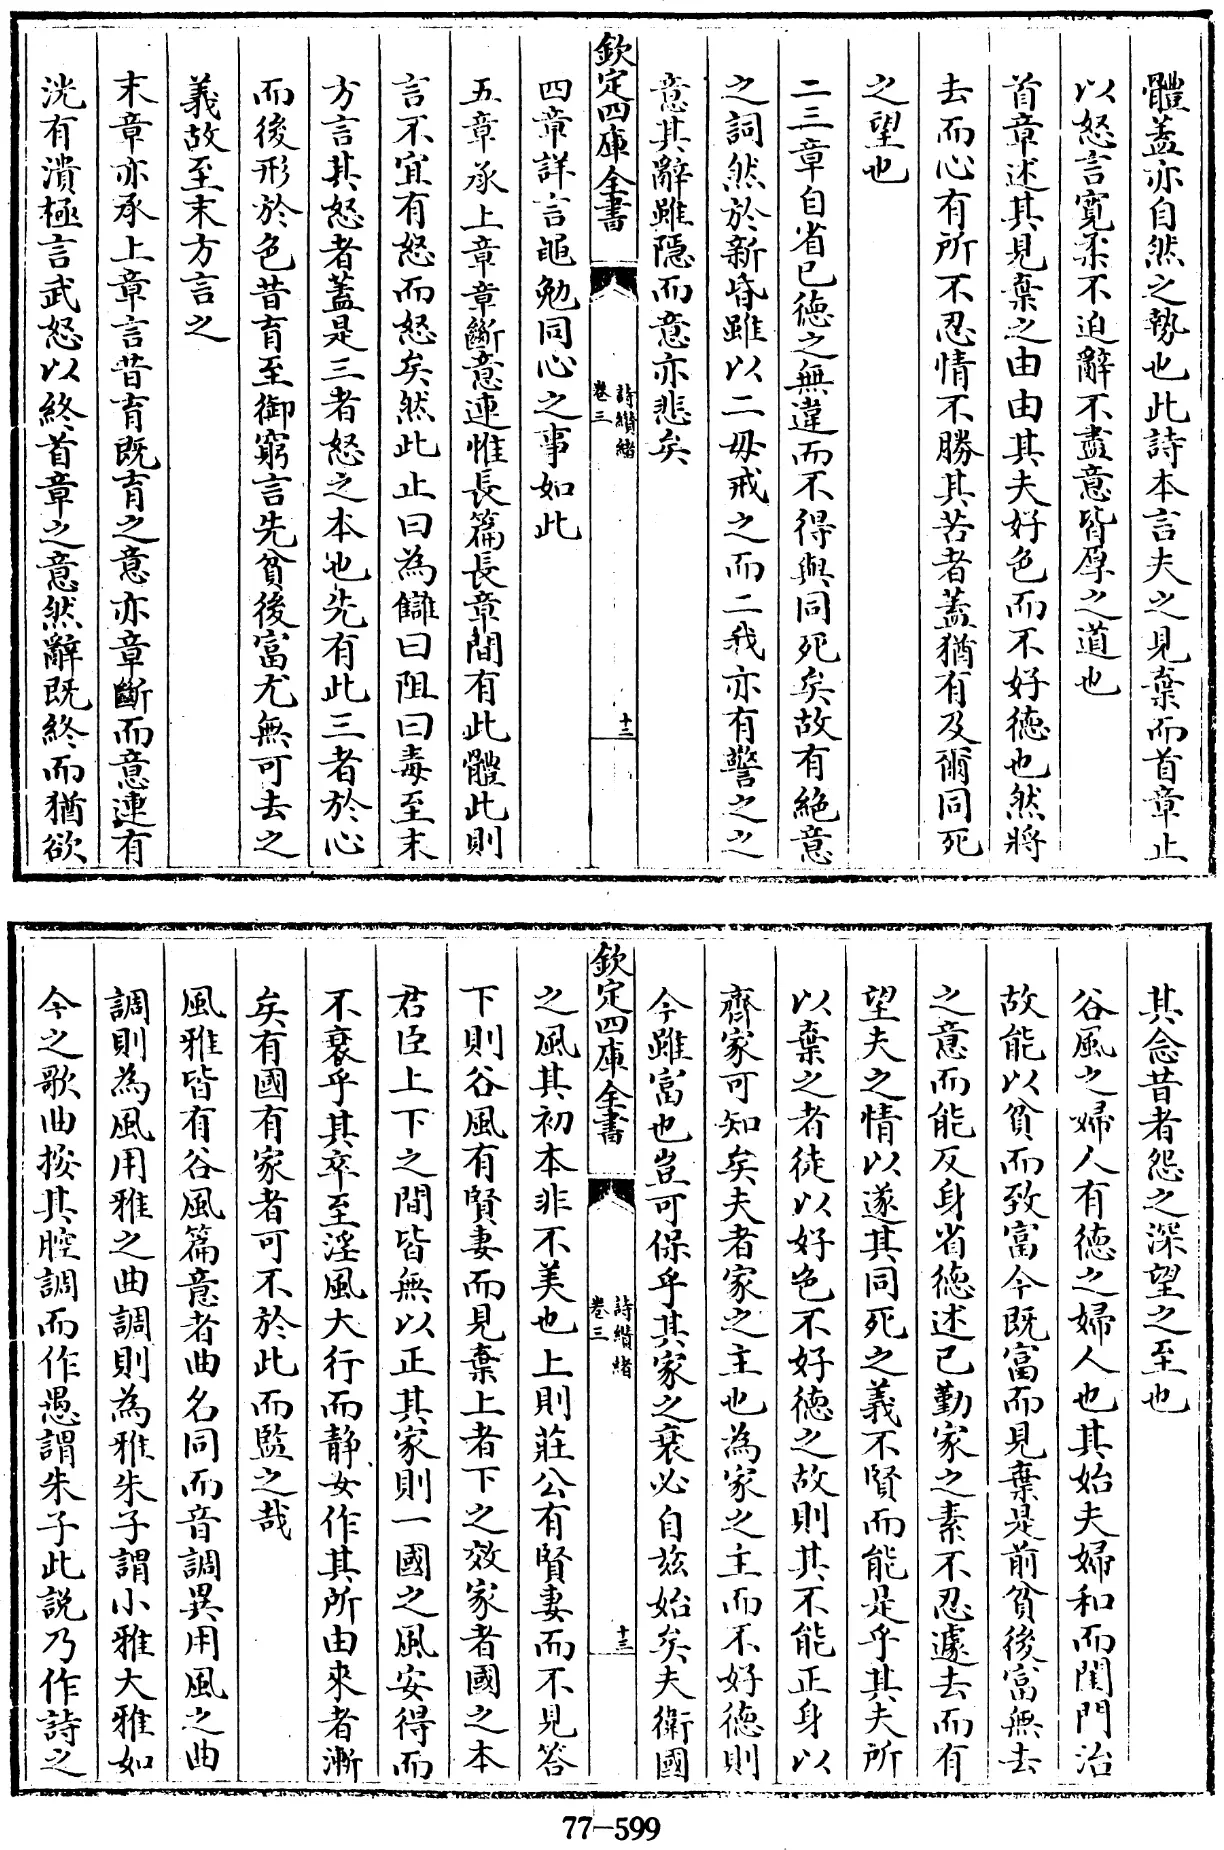 體蓋亦自然之勢也此詩本言夫之見棄而首章止
以怒言寛柔不迫辭不盡意皆厚之道也
首章述其見棄之由由其夫好色而不好徳也然將
去而心有所不忍情不勝其苦者蓋猶有及爾同死
之望也
二三章自省已徳之無違而不得與同死矣故有絶意
之詞然於新昏雖以二毋戒之而二我亦有警之之
意其辭雖隱而意亦悲矣
欽定四庫全書
詩纉緒
卷三
十三
四章詳言黽勉同心之事如此
五章承上章章斷意連惟長篇長章間有此體此則
言不宜有怒而怒矣然此止曰為讎曰阻曰毒至末
方言其怒者蓋是三者怒之本也先有此三者於心
而後形於色昔育至御窮言先貧後富尤無可去之
義故至末方言之
末章亦承上章言昔育既育之意亦章斷而意連有
洸有潰極言武怒以終首章之意然辭既終而猶欲
其念昔者怨之深望之至也
谷風之婦人有徳之婦人也其始夫婦和而閨門治
故能以貧而致富今既富而見棄是前貧後富無去
之意而能反身省徳述已勤家之素不忍遽去而有
望夫之情以遂其同死之義不賢而能是乎其夫所
以棄之者徒以好色不好徳之故則其不能正身以
齊家可知矣夫者家之主也為家之主而不好徳則
今雖富也豈可保乎其家之衰必自兹始矣夫衛國
欽定四庫全書
詩纉緒
卷三
十三
之風其初本非不美也上則莊公有賢妻而不見答
下則谷風有賢妻而見棄上者下之效家者國之本
君臣上下之間皆無以正其家則一國之風安得而
不衰乎其卒至淫風大行而静女作其所由來者漸
矣有國有家者可不於此而監之哉
風雅皆有谷風篇意者曲名同而音調異用風之曲
調則為風用雅之曲調則為雅朱子謂小雅大雅如
今之歌曲按其腔調而作愚謂朱子此説乃作詩之
77-599